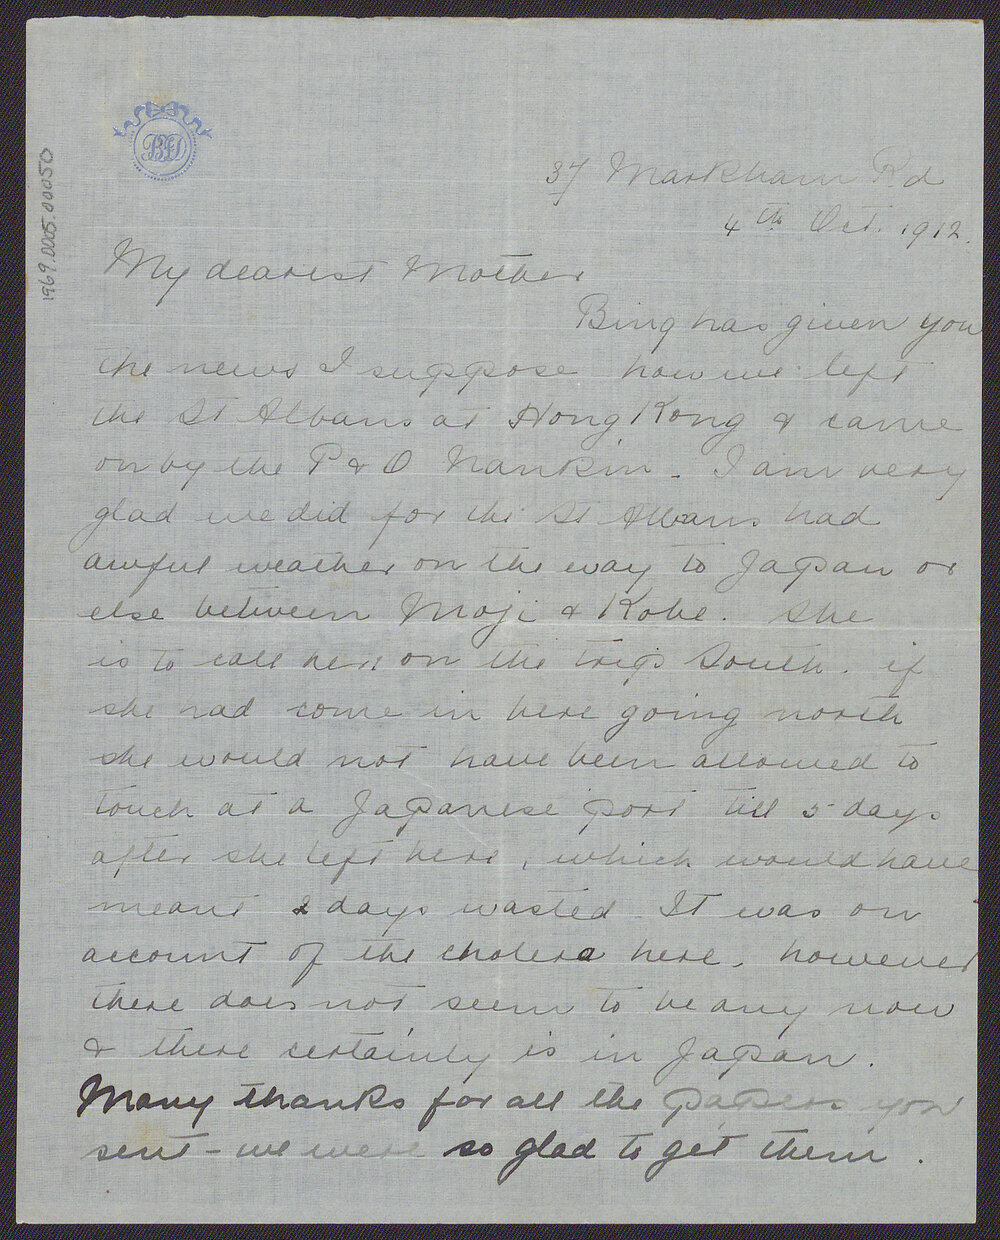 1969.0005.00050
37 Markham Rd
4th Oct. 1912.
My dearest Mother
Bing has given you
the news I suppose how we left
the St Albans at Hong Kong & came
on by the P & O Nankin. I am very
glad we did for the St Albans had
awful weather on the way to Japan or
else between Moji & Kobe. She
is to call here on the trip South. if
she had come in here going north
she would not have been allowed to
touch at a Japanese port till 5 days
after she left here, which would have
meant 2 days wasted. It was on
account of the cholera here, however
there does not seem to be any now
& there certainly is in Japan.
Many thanks for all the papers you
sent - we were so glad to get them.